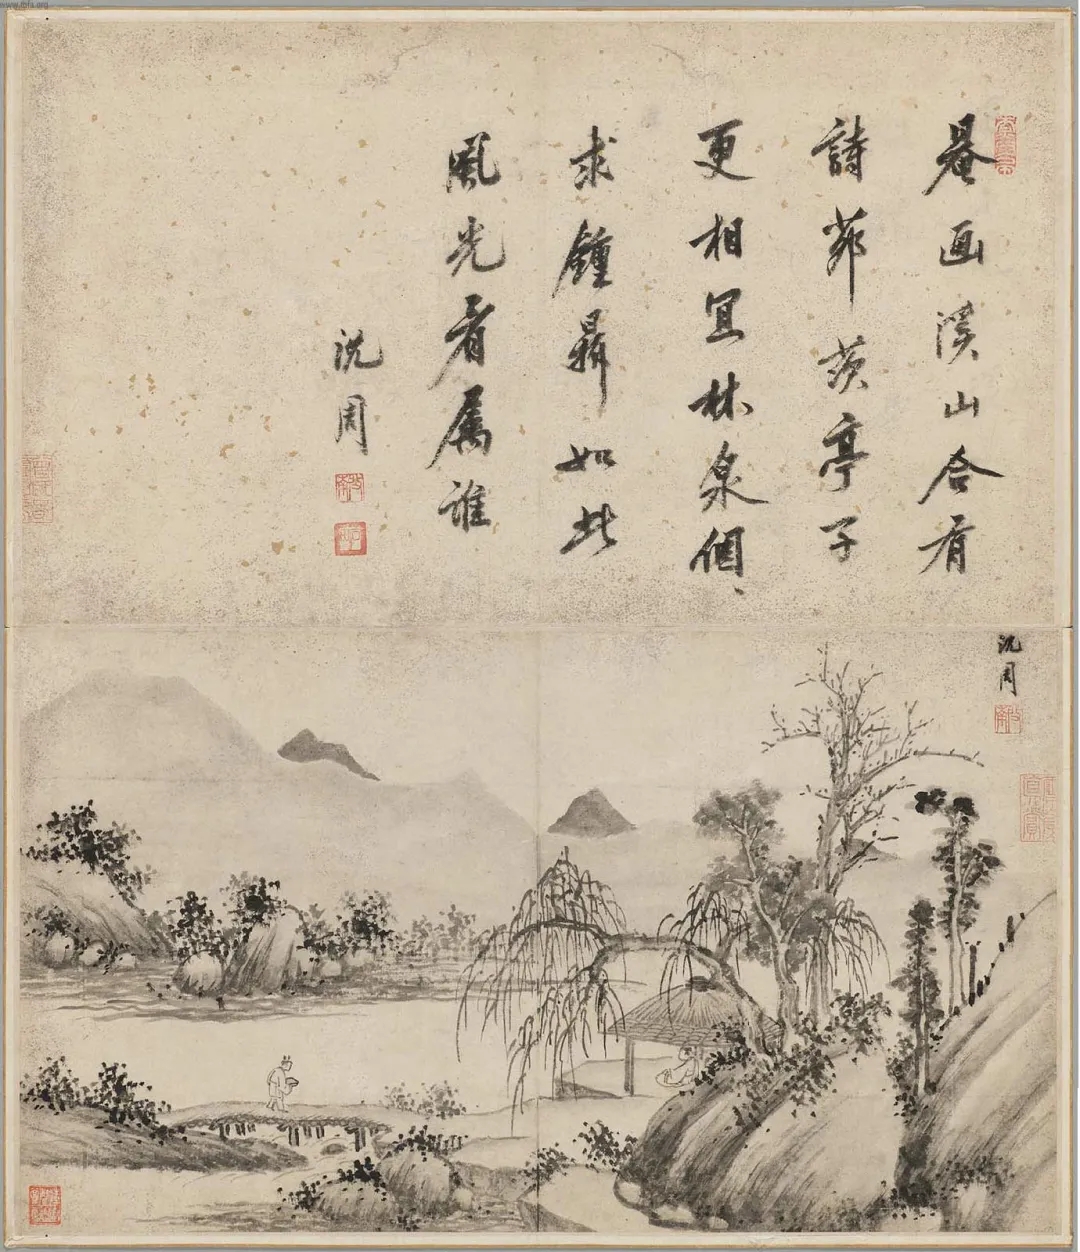 罨画溪山合有
詩茆茨亭子
更相宜林泉個、
求鐘鼎如此
風光看属誰
沈周
沈周